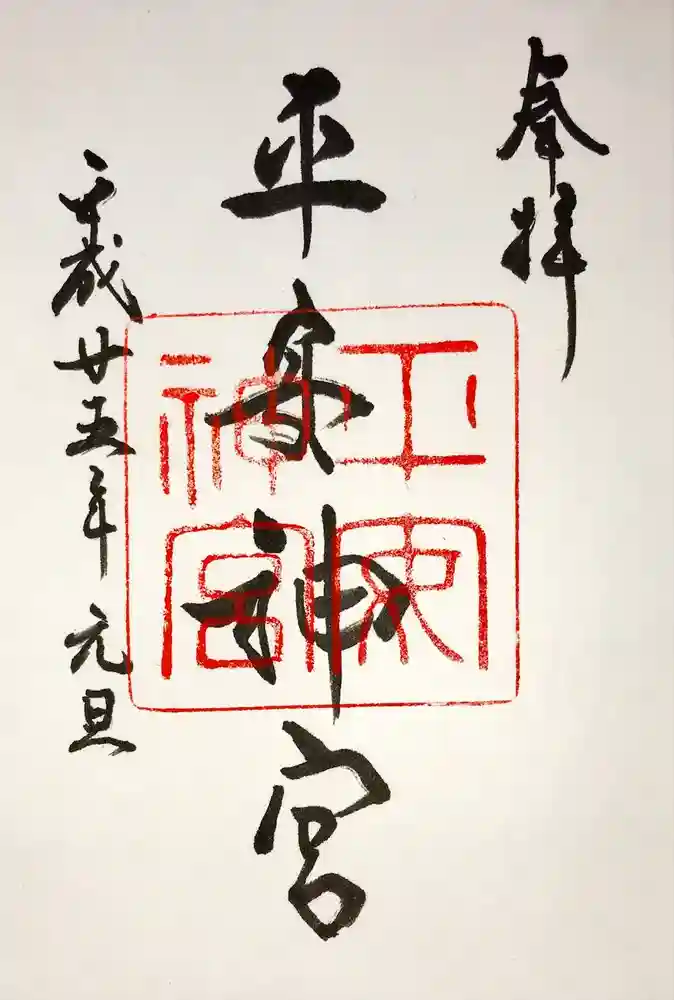 奉拝
平安神宮
平成廿五年元旦
平安
神宮